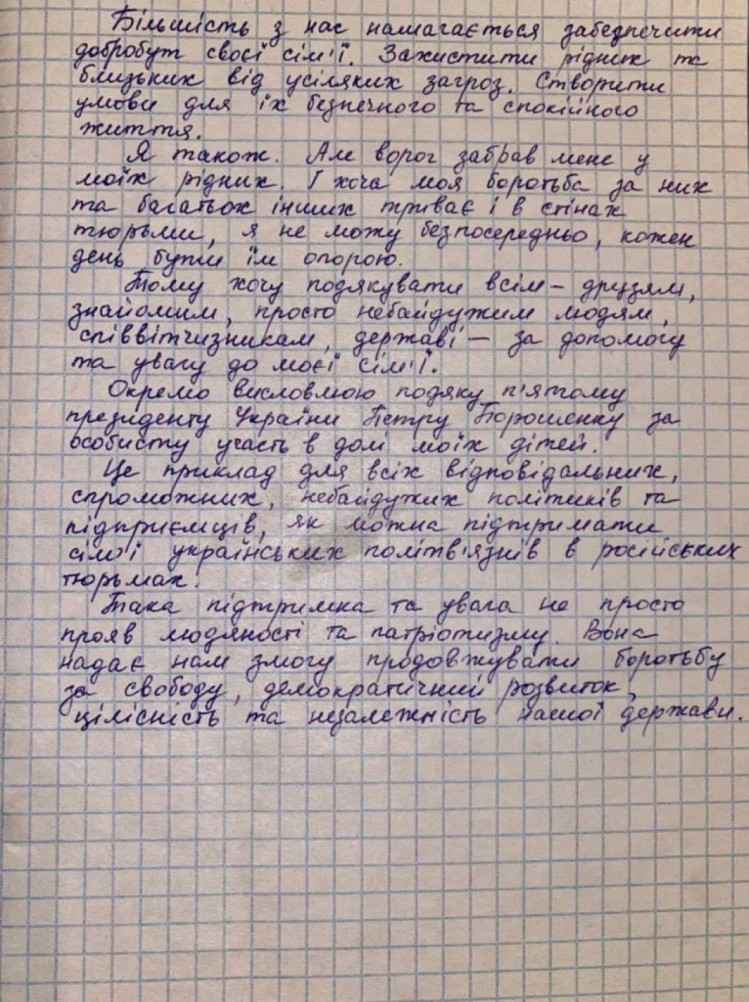 Більшість з нас намагається забезпечити
добробут своєї сім'ї. Захистити рідних та
близьких від усіляких загроз. Створити
умови для їх безпечного та спокійного
життя.
Я також. Але ворог забрав мене у
моїх рідних. І хоча моя боротьба за них
та багатьох інших триває і в стінах
тюрьми, я не можу безпосередньо, кожен
день бути їм опорою.
Тому хочу подякувати всім – друзям,
знайомим, просто небайдужим людям,
співвітчизникам, державі – за допомогу
та увагу до моєї сім'ї.
Окремо висловлюю подяку п'ятому
президенту України Петру Порошенку за
особисту участь в долі моїх дітей.
Це приклад для всіх відповідальних,
спроможних, небайдужих політиків та
підприємців, як можна підтримати
сім'ї українських політв'язнів в російських
тюрьмах.
Така підтримка та увага не просто
прояв людяності та патріотизму. Вона
надає нам змогу продовжувати боротьбу
за свободу, демократичний розвиток,
цілісність та незалежність нашої держави.